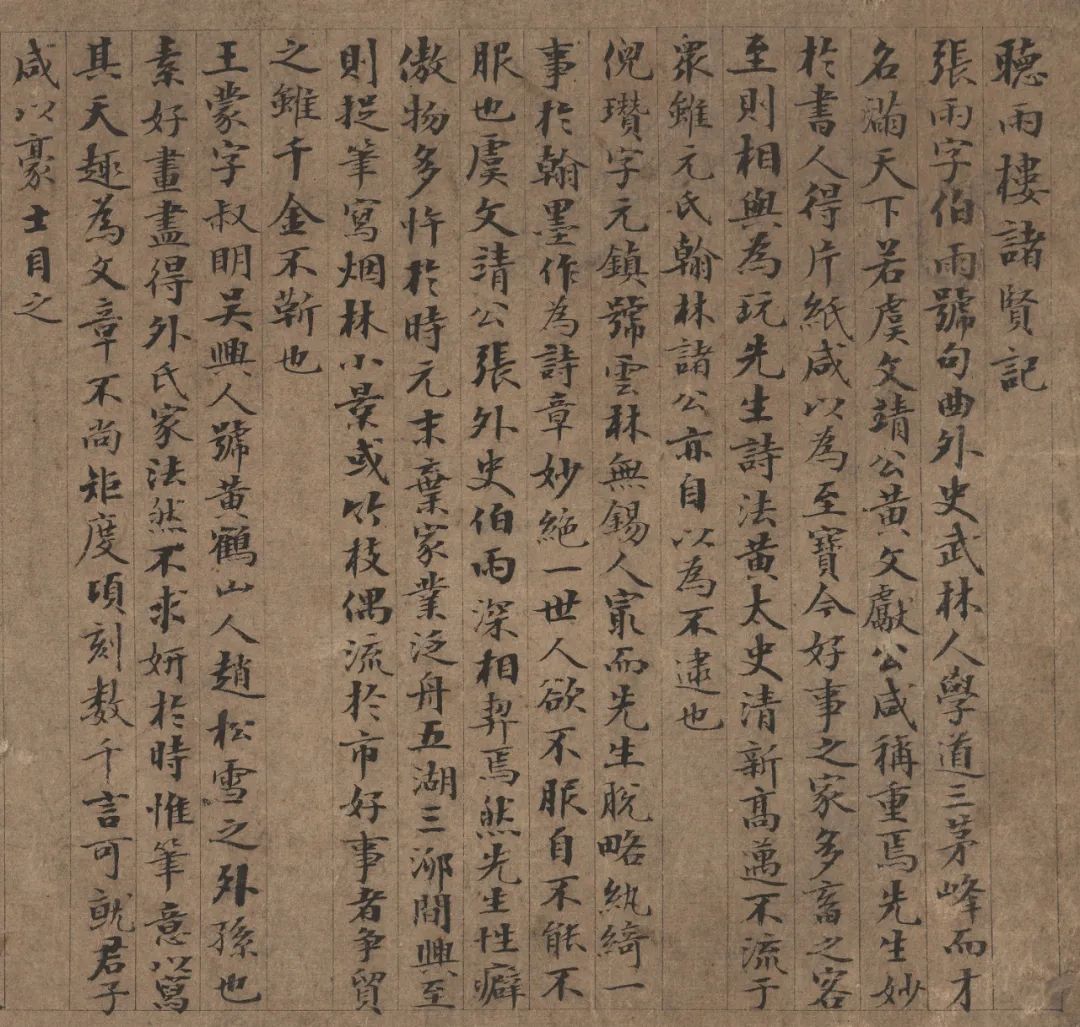 聽雨樓諸賢記
張雨字伯雨號句曲外史武林人學道三茅峰而才
名滿天下若虞文靖公黃文獻公咸稱重焉先生妙
於書人得片紙咸以為至寶今好事之家多畜之客
至則相與為玩先生詩法黃太史清新高邁不流于
衆雖元氏翰林諸公亦自以為不逮也
倪瓚字元鎮號雲林無錫人冣而先生脫略紈綺一
事於翰墨作為詩章妙絕一世人欲不服自不能不
服也虞文靖公張外史伯雨深相契焉然先生性癖
傲物多忤於時元末棄家業泛舟五湖三泖間興至
則捉筆寫烟林小景或竹枝偶流於市好事者争貿
之雖千金不靳也
王蒙字叔明吴興人號黃鶴山人趙松雪之外孫也
素好畫盡得外氏家法然不求妍於時惟筆意以寫
其天趣為文章不尚矩度頃刻数千言可就君子
咸以豪士目之